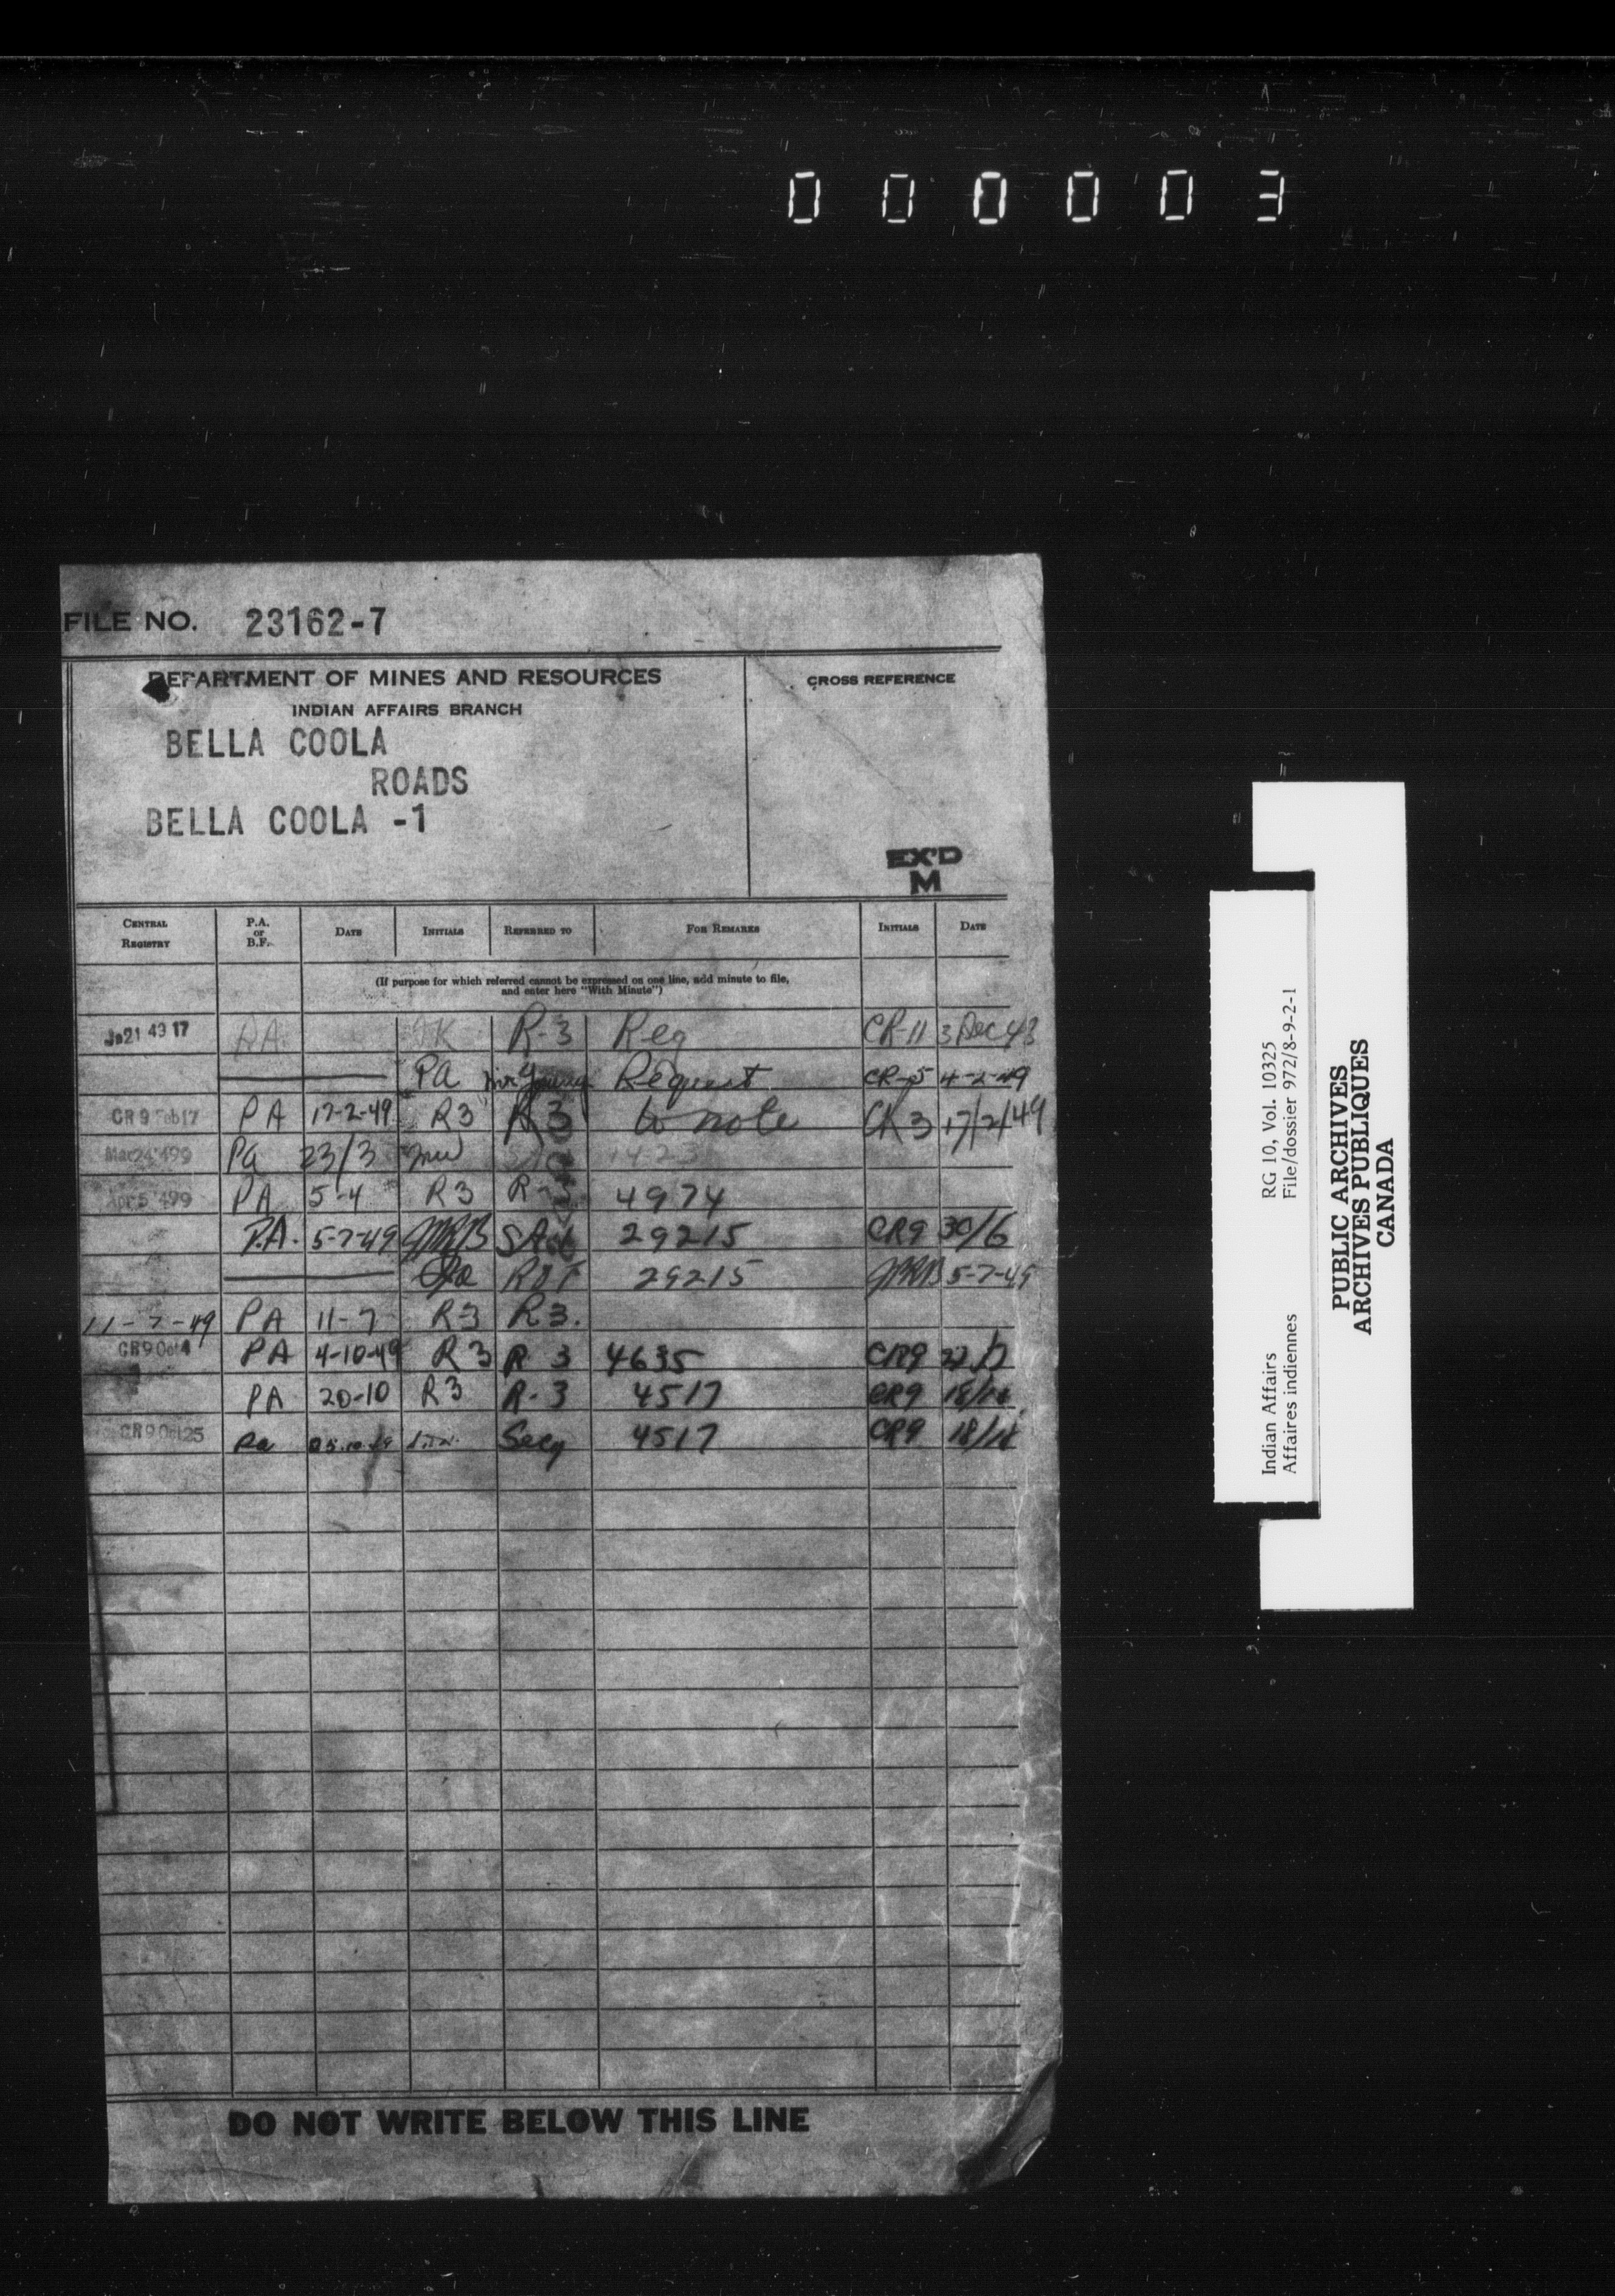 000003
FILE NO. 23162-7
DEPARTMENT OF MINES AND RESOURCES
INDIAN AFFAIRS BRANCH
CROSS REFERENCE
BELLA COOLA
ROADS
BELLA COOLA -1
EX'D
M
CENTRAL REGISTRY P.A. or B.F. DATE INITIALS REFERRED TO FOR REMARKS INITIALS DATE
(If purpose for which referred cannot be expressed on one line, add minute to file,
and enter here "With Minute")
Ja21 49 17 P.A. R-3 Req CR-11 3 Dec 43
Pa Request CR-5 4-2-49
CR 9 Feb 17 PA 17-2-49 R3 R3 to note CR 3 17/2/49
Mar24'499 Pa 23/3
Apr 5'499 PA 5-4 R3 R-3 4974
P.A. 5-7-49 29215 CR9 30/6
29215 5-7-49
11-7-49 PA 11-7 R3 R3.
CR9 Oct 4 PA 4-10-49 R3 R 3 4635 CR9
PA 20-10 R3 R-3 4517 CR9
CR9 Oct 25 Pa Secy 4517 CR9
DO NOT WRITE BELOW THIS LINE
Indian Affairs RG 10, Vol. 10325
Affaires indiennes File/dossier 972/8-9-2-1
PUBLIC ARCHIVES
ARCHIVES PUBLIQUES
CANADA